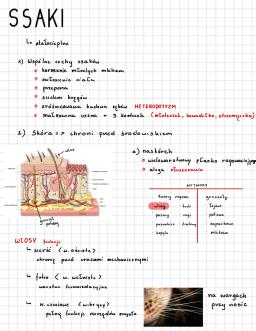 SSAKI
↳ stałocieplne
1) Wspólne cechy ssaków
karmienie młodych mlekiem
owłosienie ciała
przepona
siedem kręgów
zróżnicowana budowa zębów HETERODONTYZM
małżowina uszna + 3 kostki (młoteczek, kowadełko, strzemiączko)
2) Skóra => chroni przed środowiskiem
a) naskórek
wielowarstwowy płaski rogowaciejący
ulega złuszczaniu
WYTWORY
twory rogowe
gruczoły
włosy
łojowe
pazury
potowe
zapachowe
kopyta
mlekowe
WŁOSY funkcje
↳ sierść (w. ościste)
chronią przed urazami mechanicznymi
↳ futro (w. wełniste)
warstwa termoizolacyjna
↳ w. czuciowe (wibrysy)
pełnią funkcję narządów zmysłu
na wargach
przy nosie